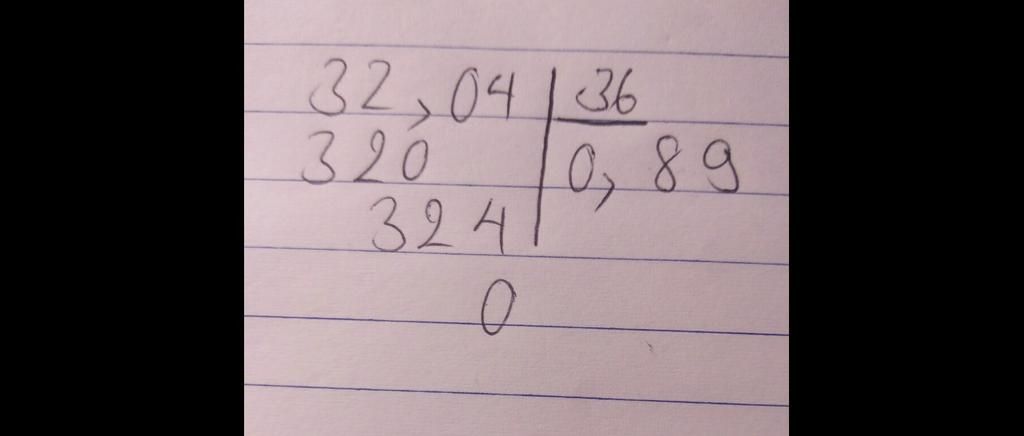 32,04 | 36
320 | 0,89
324
0